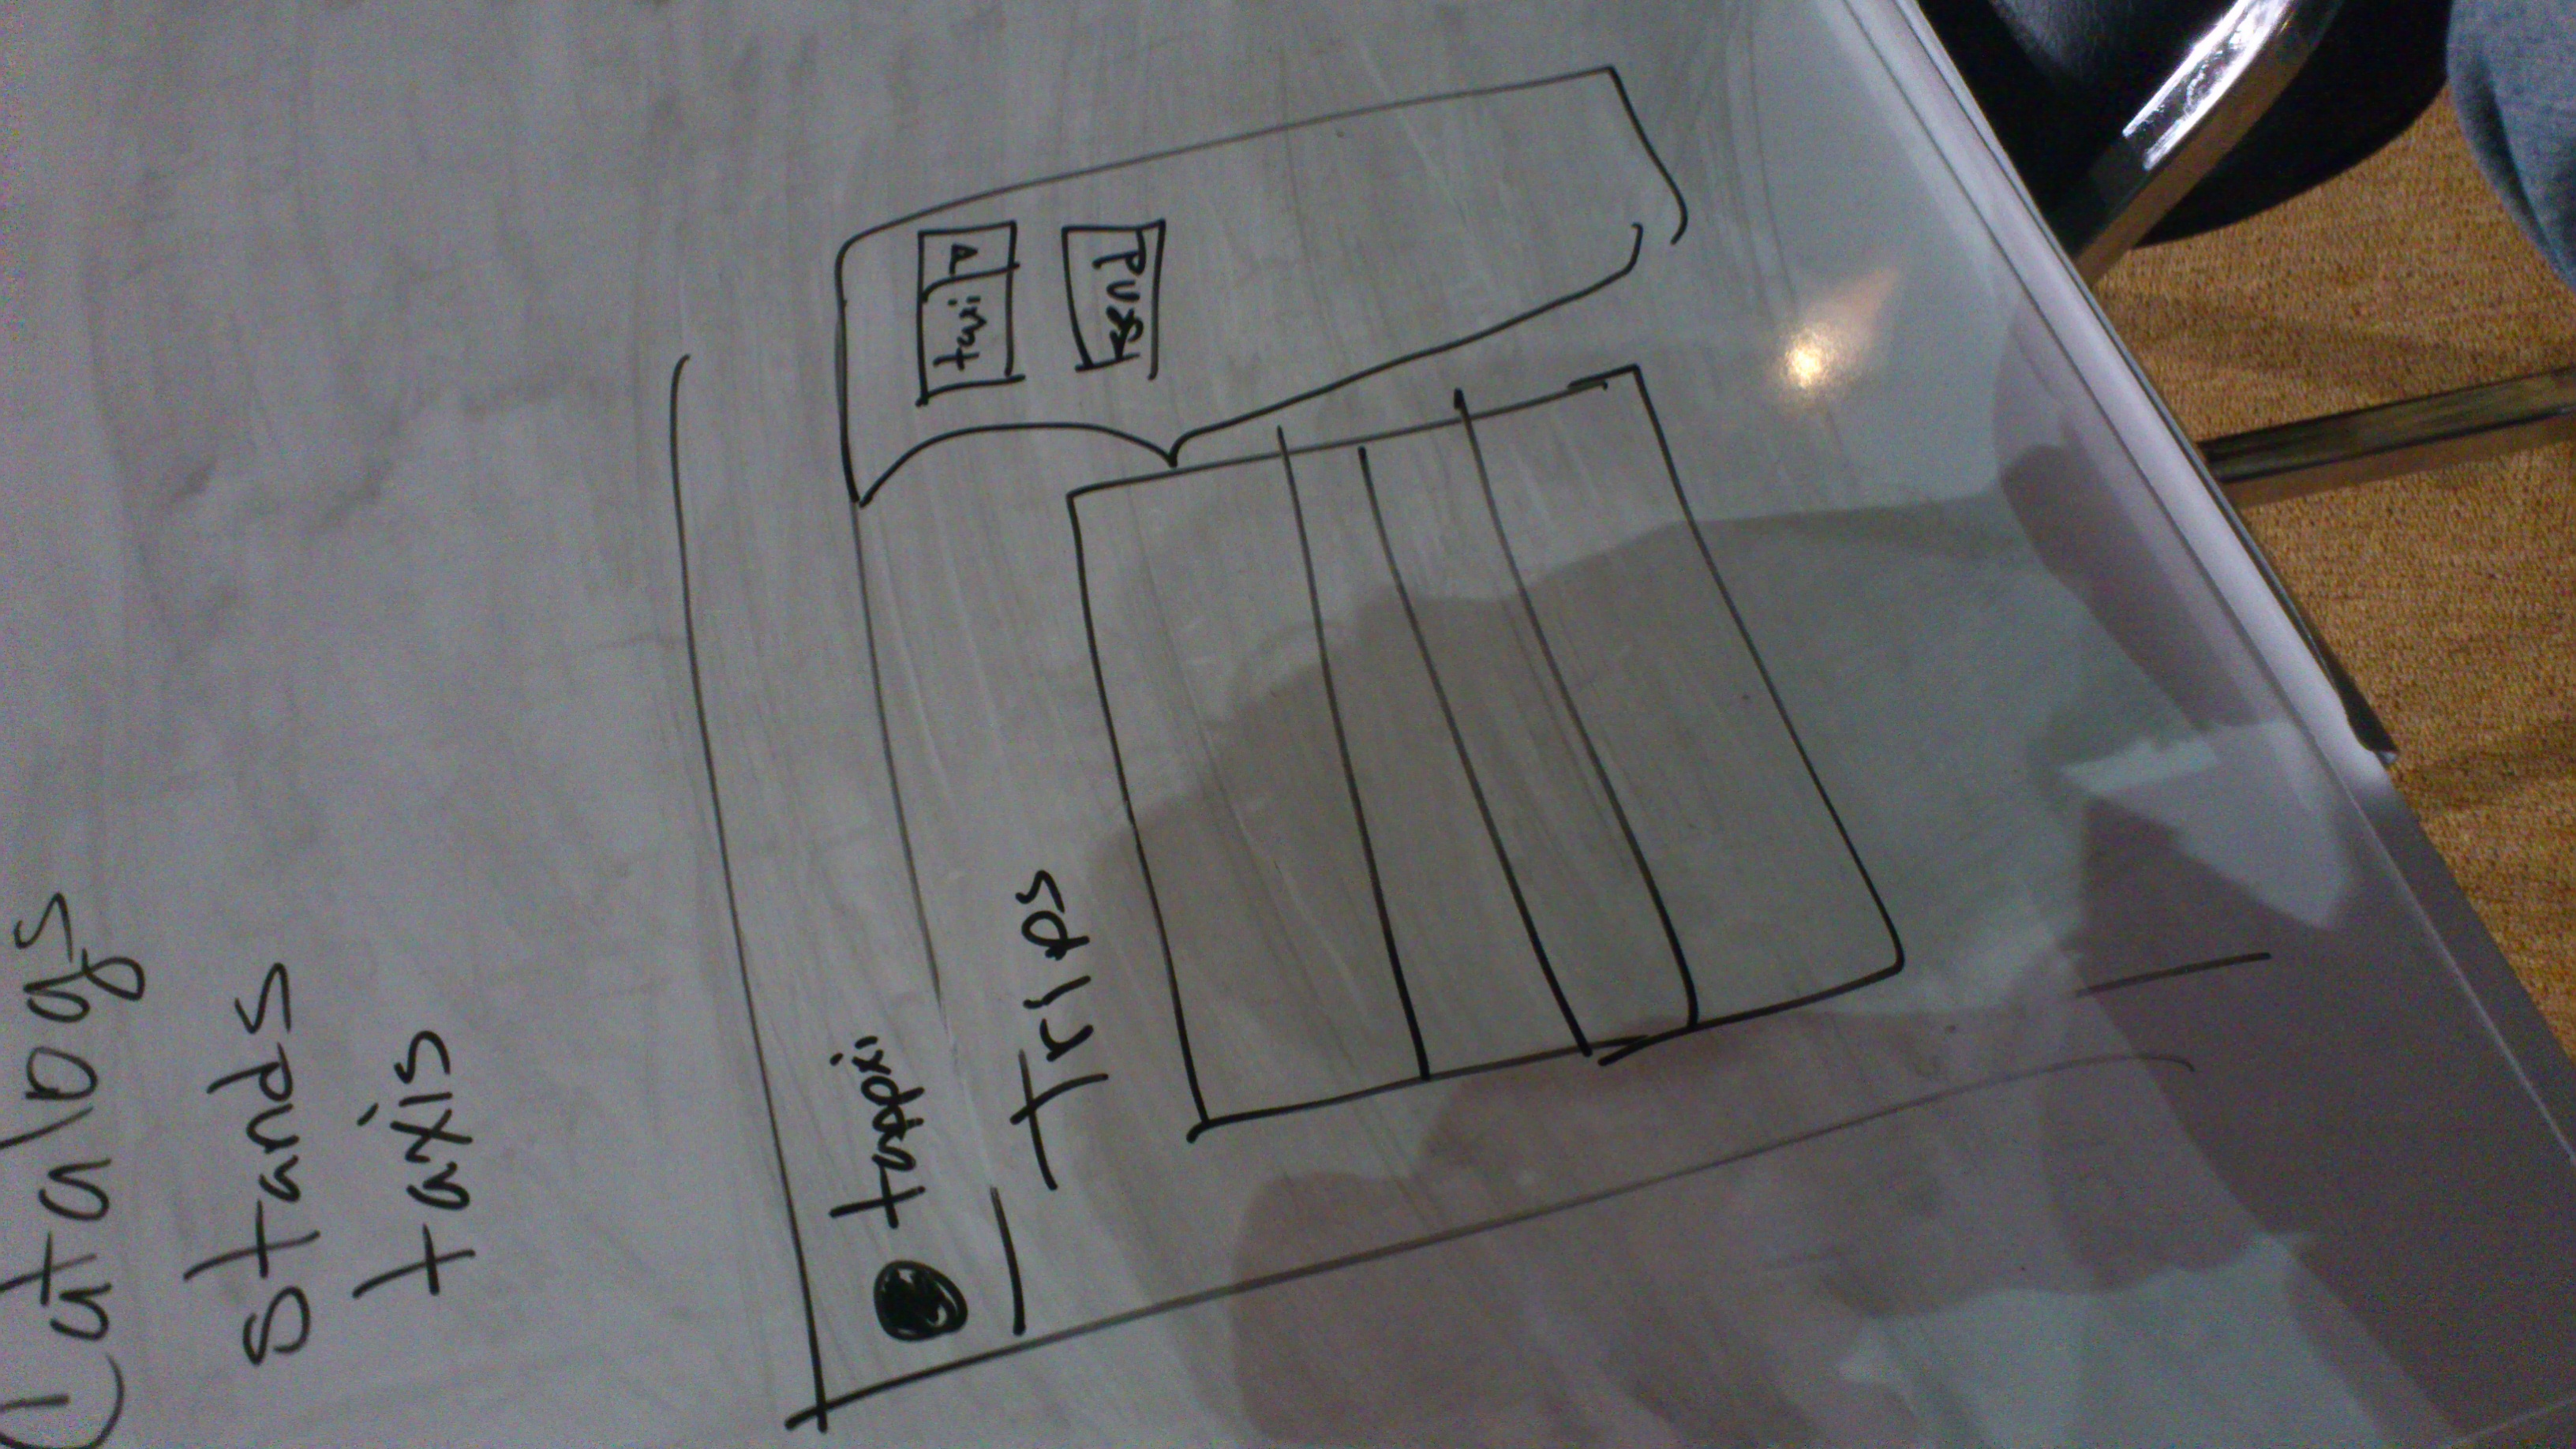 Catalogs
stands
taxis
tappxi
Trips
taxi
send